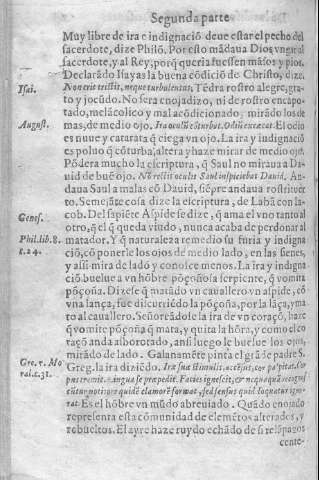 Segunda parte
Muy libre de ira e indignació deue estar el pecho del
sacerdote, dize Philõ. Por esto mãdaua Dios vngir al
sacerdote, y al Rey, porq̃ queria fuessen mãsos y pios.
Isai.
Declarãdo Isayas la buena cõdiciõ de Christo, dize.
Non erit tristis, neque turbulentus, Tẽdra rostro alegre, gra-
to y jocũdo. No sera enojadizo, ni de rostro encapo-
tado, melãcolico y mal acõdicionado, mirãdo los de
August.
mas, de medio ojo. Ira oculũ cõturbat. Odiũ excæcat. El odio
es nuue y catarata q̃ ciega vn ojo. La ira y indignaciõ
es poluo q̃ cõturba, altera y haze mirar de medio ojo
Põdera mucho la escriptura, q̃ Saul no miraua a Da-
uid de buẽ ojo. Nõ rectis oculis Saul inspiciebat Dauid, An-
daua Saul a malas cõ Dauid, siẽpre andaua rostrituer-
to. Semejãte cosa dize la escriptura, de Labã con Ia-
Genes.
cob. Del sapiẽte Aspide se dize, q̃ ama el vno tanto al
otro, q̃ el q̃ queda viudo, nunca acaba de perdonar al
Phil. lib. 8.
matador. Y q̃ naturaleza remedio su furia y indigna
c. 24.
ciõ, cõ ponerle los ojos de medio lado, en las sienes,
y assi mira de lado y conosce menos. La ira y indigna
ciõ buelue a vn hõbre põçoñosa serpiente, q̃ vomita
põçoña. Dize q̃ matãdo vn cauallero vn aspide, cõ
vna lança, fue discurriẽdo la põçoña, por la lãça, y ma
to al cauallero. Señoreãdose la ira de vn coraçõ, haze
q̃ vomite põçoña q̃ mata, y quita la hõra, y como el co
raçõ anda alborotado, ansi luego le buelue los ojos,
mirãdo de lado. Galanamẽte pinta el grã de padre S.
Gre. 5. Mo
Greg. la ira diziẽdo. Ira suæ stimulis accẽsus, cor palpitat, cor
ral. c. 31.
pus tremit, lingua se præpedit. Facies ignescit,
cũtur notitiæ quidẽ clamorẽ format, sed sensus quid loquatur igno-
rat. Es el hõbre vn mũdo abreuiado. Quãdo enojado
representa esta cõmunidad de elemẽtos alterados, y
rebueltos. El ayre haze ruydo echãdo de si relãpagos
cente-